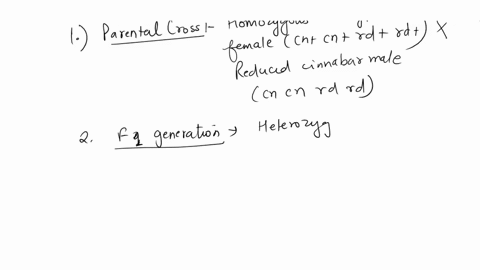 1.) Parental Cross :- Homozygous
female (cn+ cn+ rd+ rd+) X
Reduced cinnabar male
(cn cn rd rd)
2. F1 generation → Heterozyg